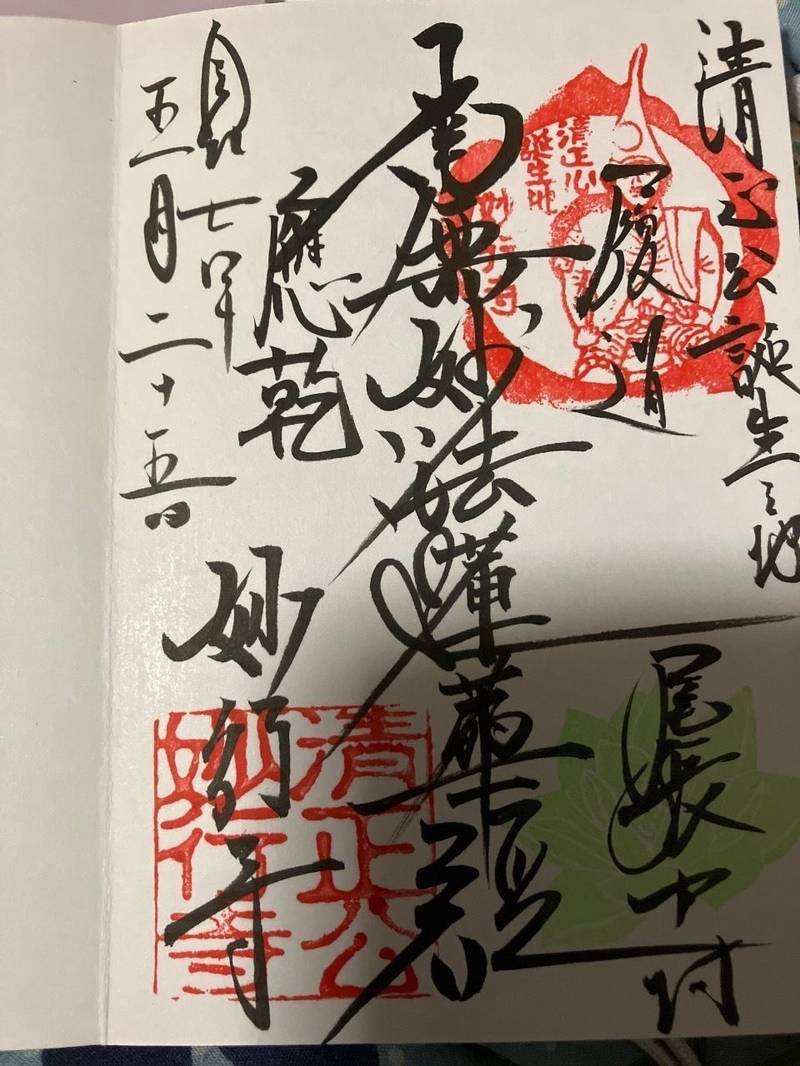 清正公誕生之地
履道
尾張中村
南無妙法蓮華経
應乾
妙行寺
七年
五月二十五日
清正公
誕生地
妙行寺
清正公
妙行寺